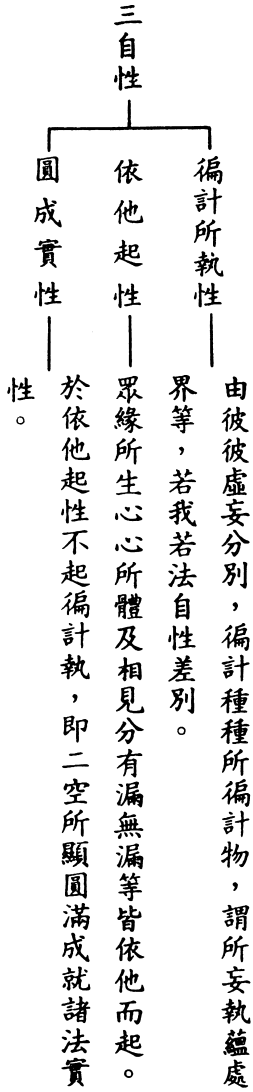 三自性
徧計所執性
由彼彼虛妄分別，徧計種種所徧計物，謂所妄執蘊處
界等，若我若法自性差別。
依他起性
眾緣所生心心所體及相見分有漏無漏等皆依他而起。
圓成實性
於依他起性不起徧計執，即二空所顯圓滿成就諸法實
性。